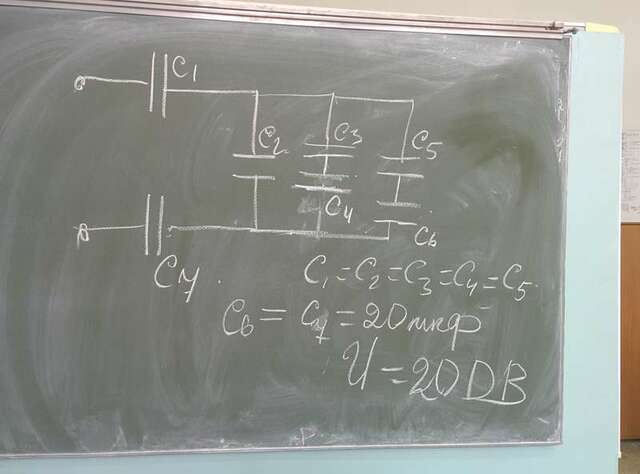 C1
C2 C3 C5
C4
C6
C7
C1=C2=C3=C4=C5
C6=C7=20мкф
U=200В